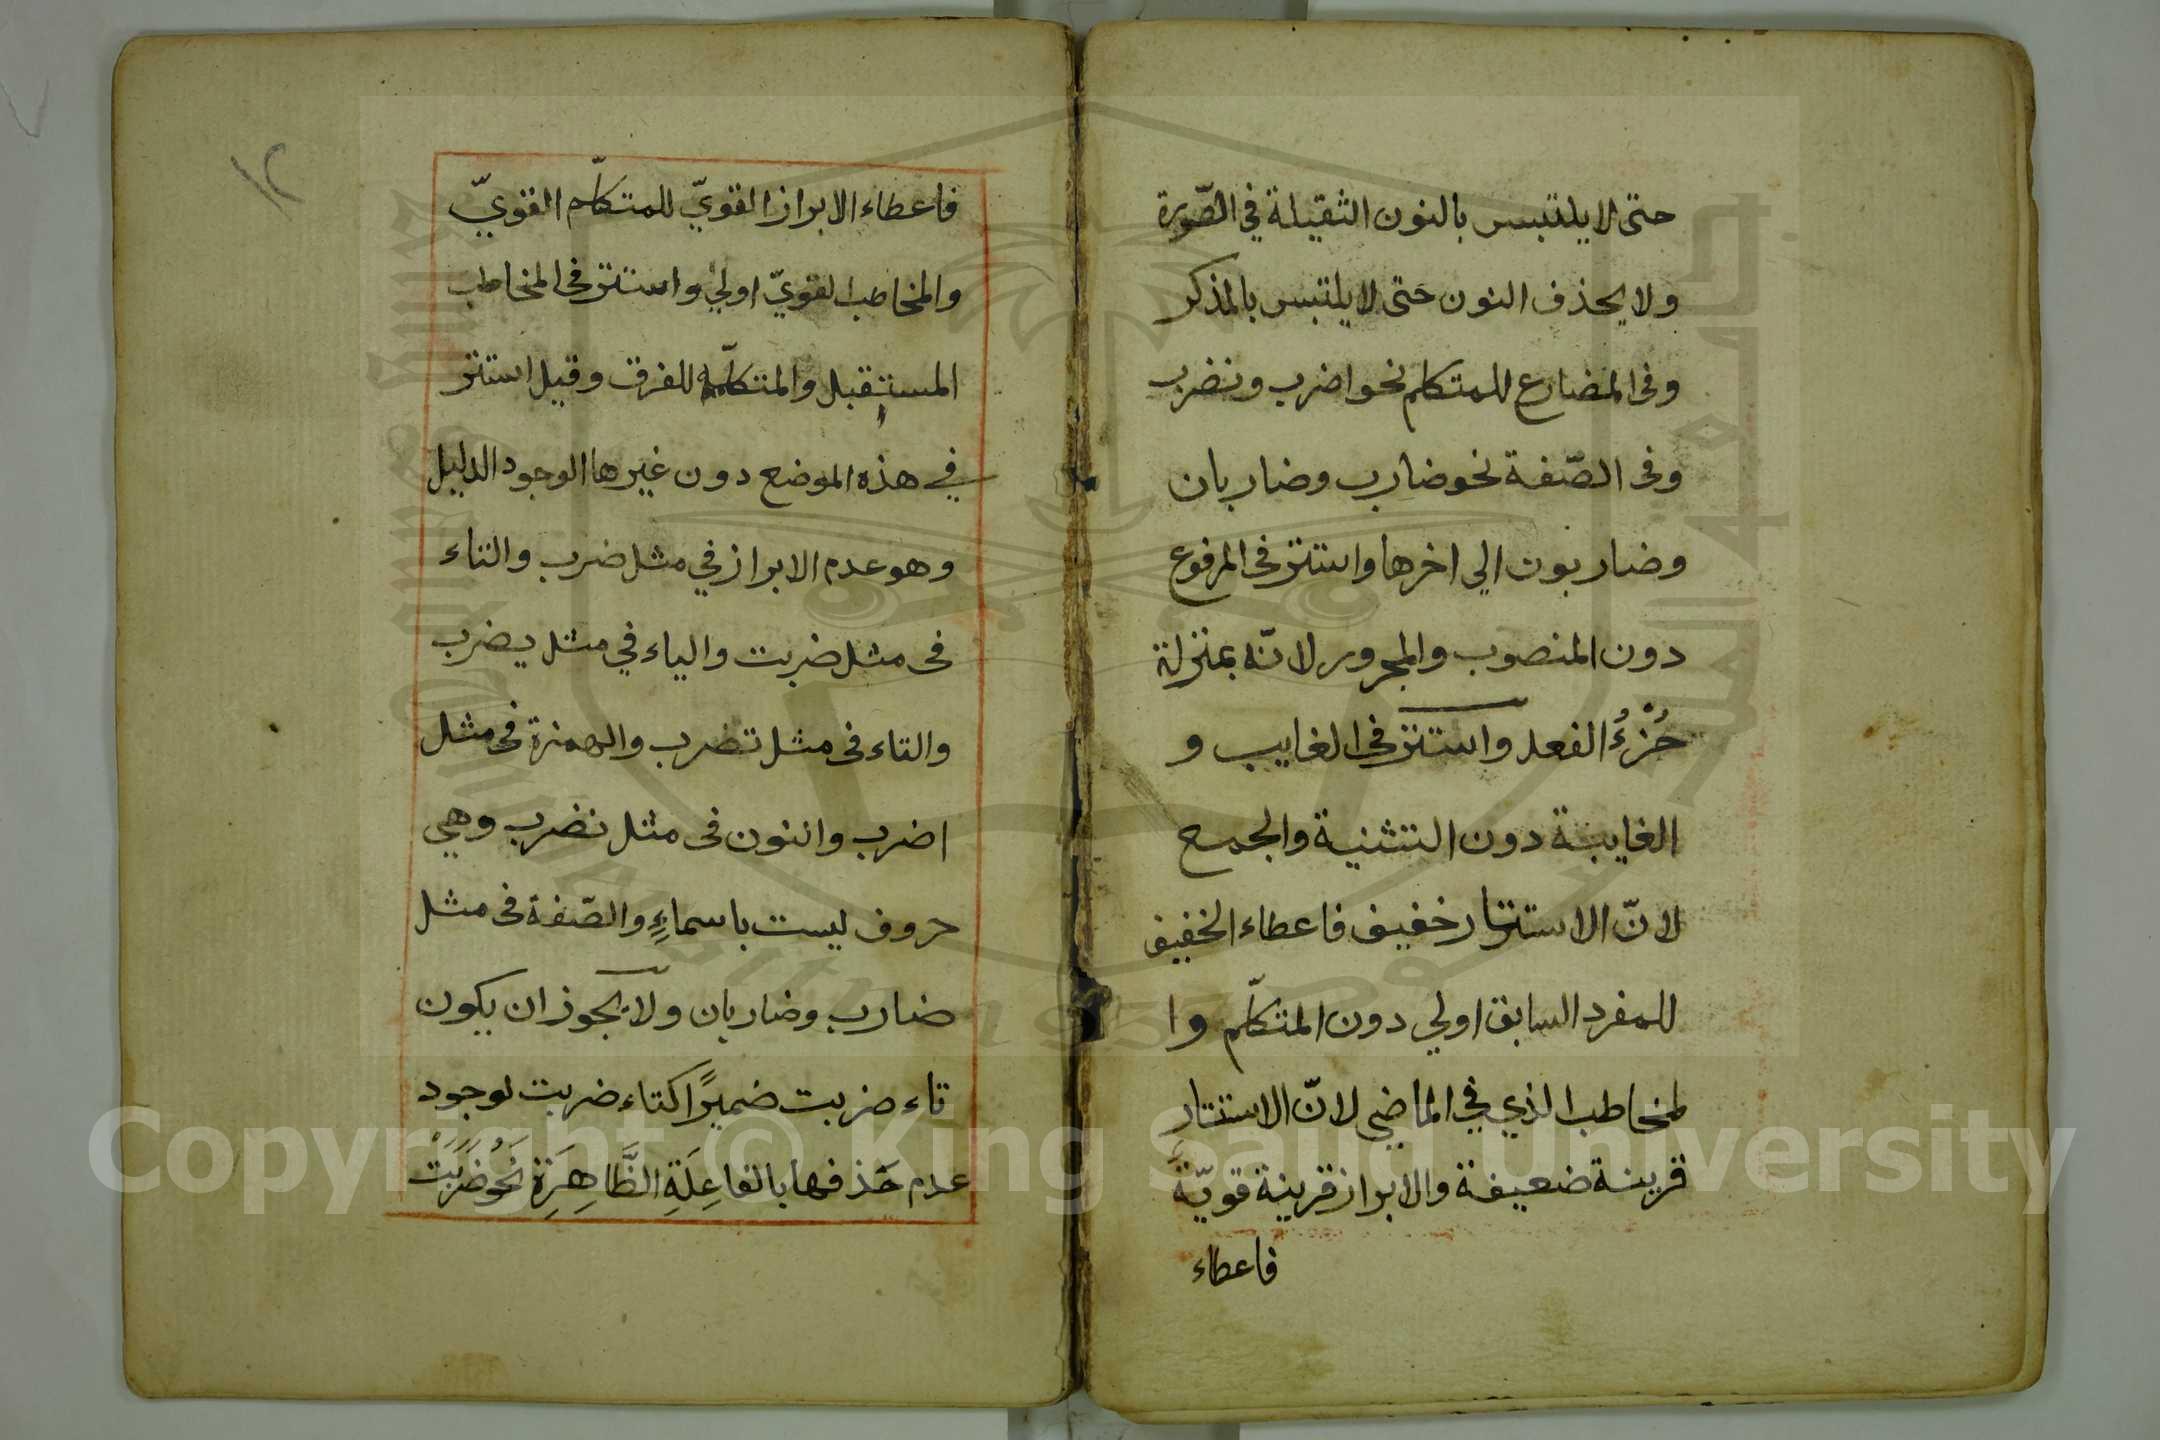 حتى لا يلتبس بالنون الثقيلة في الصّورة
ولا يحذف النون حتى لا يلتبس بالمذكر
وفى المضارع للمتكلم نحو اضرب ونضرب
وفى الصّفة نحو ضارب وضاربان
وضاربون الي اخرها واستتر فى المرفوع
دون المنصوب والمجرور لانّه بمنزلة
جُزْءُ الفعل واستتر فى الغايب و
الغايبة دون التثنية والجمع
لانّ الاستتار خفيف فاعطاء الخفيف
للمفرد السابق اولي دون المتكلّم وا
لمخاطب الذي في الماضي لانّ الاستتار
قرينة ضعيفة والابراز قرينة قويّة
فاعطاء
١٢
فاعطاء الابراز القويّ للمتكلّم القويّ
والمخاطب القويّ اولي واستتر فى المخاطب
المستقبل والمتكلّم للفرق وقيل استتر
في هذه الموضع دون غيرها لوجود الدليل
وهو عدم الابراز في مثل ضرب والتاء
فى مثل ضربت والياء في مثل يضرب
والتاء فى مثل تضرب والهمزة فى مثل
اضرب والنون فى مثل نضرب وهي
حروف ليست باسماءٍ والصّفة فى مثل
ضارب وضاربان ولا يجوز ان يكون
تاء ضربت ضميرًا كتاء ضربت لوجود
عدم حَذفها بالفاعِلَةِ الظَّاهِرَةِ نَحْوُ ضَرَبَتْ
Copyright © King Saud University